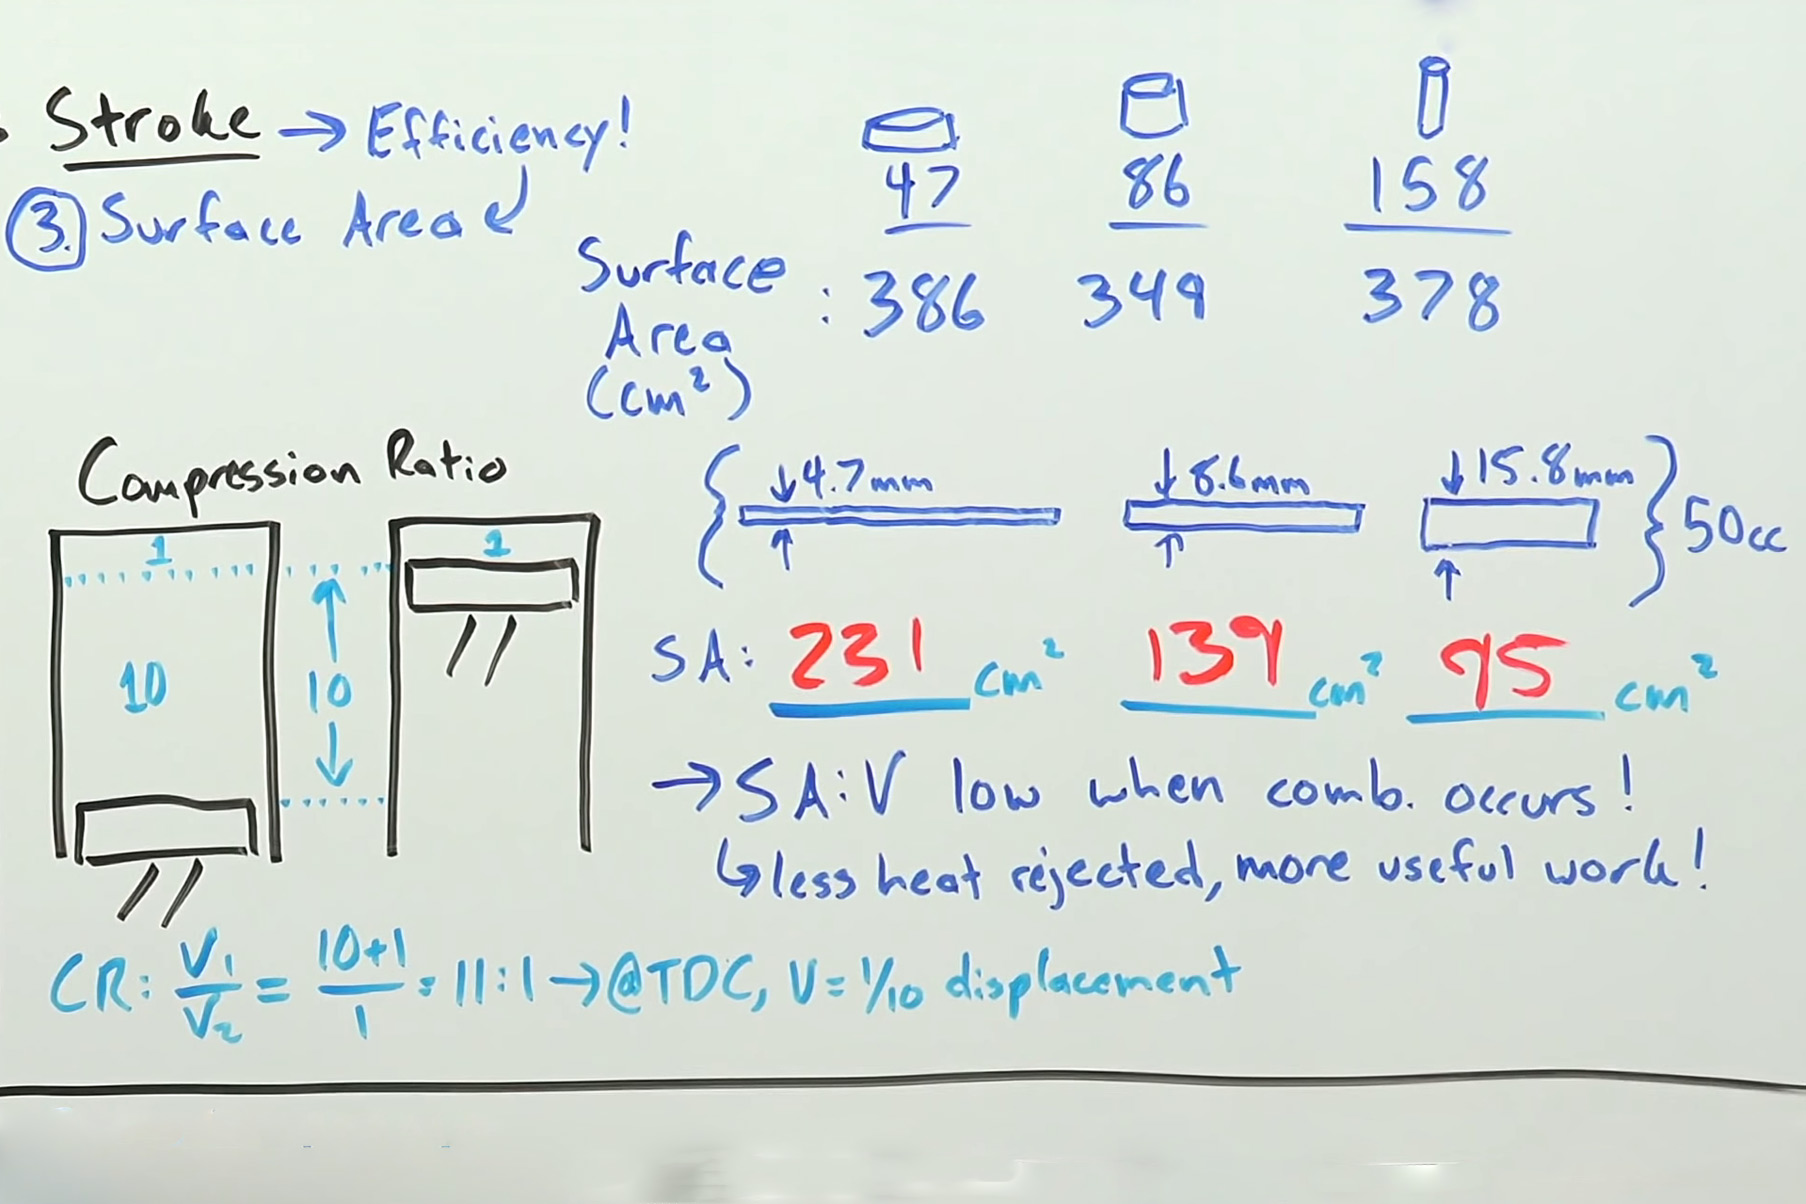 Stroke → Efficiency!
③ Surface Area
47 86 158
Surface Area (cm²) : 386 349 378
Compression Ratio
1
10
10
1
↓4.7mm ↓8.6mm ↓15.8mm
50cc
SA: 231 cm² 139 cm² 95 cm²
→ SA:V low when comb. occurs!
↳ less heat rejected, more useful work!
CR: V₁/V₂ = 10+1/1 = 11:1 → @TDC, V = 1/10 displacement